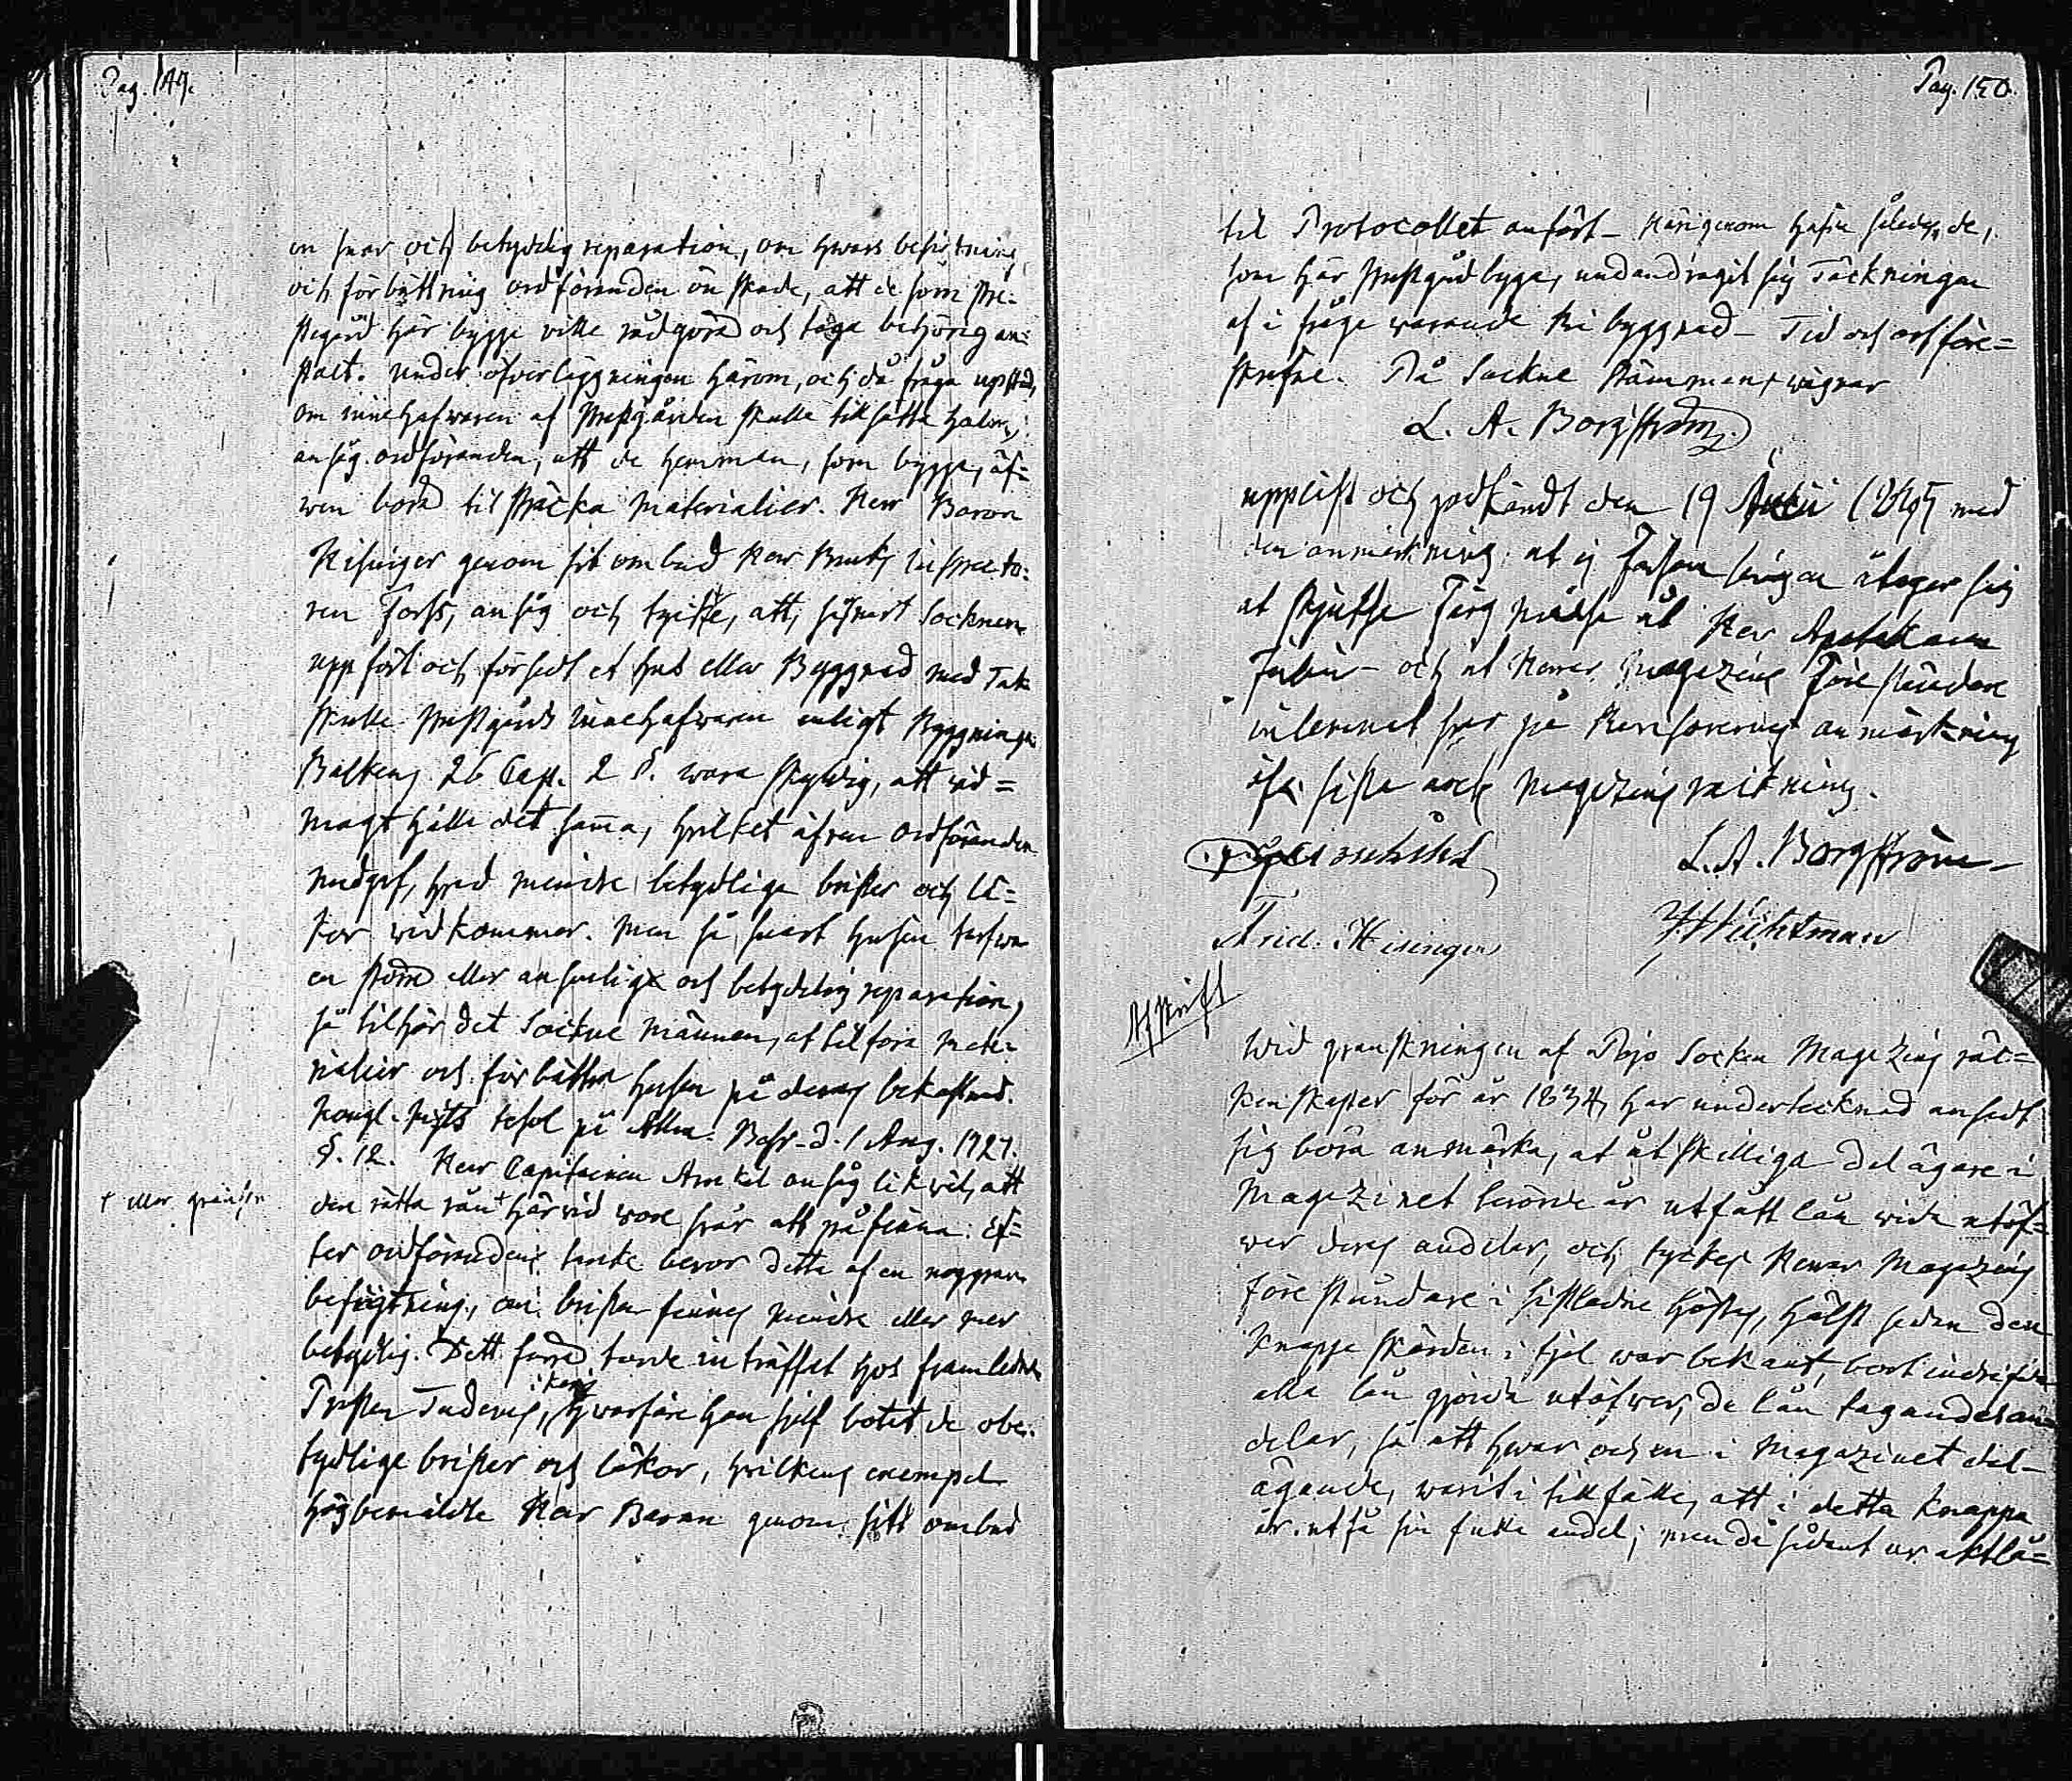 Pag. 149.
en snar och betydelig reparation, om hwars besigtning
och förbättring ordföranden önskade, att de som Pre-
stegård här bygge ville rådgöra och taga behörig an-
stalt. Under öfverläggningen härom, och då fråga upstod,
om innehafwaren af Prestgården skulle tillsätta halm,
ansåg ordföranden, att de hemman, som bygga, äf-
wen borde til sträcka Materialier. Herr Baron
Hisinger genom sit ombud Herr Bruks Inspecto-
ren Forss, ansåg och tyckte, att, så snart Socknen
uppfört och försedt et hus eller Byggnad med Tak
skulle Prestgårds Innehafwaren enligt Byggninga
Balkens 26 Cap. 2 §. wara skyldig, att wid=
magt hålla det samma, hvilket äfven Ordföranden
medgaf, hvad mindre betydlige brister och lä-
kor widkommer. Men så snart husen tarfwa
en större eller ansenlig och betydelig reparation,
så tillhör det Sockne Männen, at tilföra Mate-
rialier och förbättra husen på deras bekostnad.
Kongl. Mjts resol på Allm. Besv. d. 1 Aug. 1727.
§. 12. Herr Capitainen Amkel ansåg likwäl, att
+ eller gränsen
den rätta rån + härvid wore svår att påfinna. Ef-
ter ordförandens tanke beror detta af en noggran
besigtning, om bristen finnes mindre eller mer
betydlig. Dett förra torde inträffat hos framledne
i Karis
Prosten Tuderus, hwarföre han sjelf botat de obe-
tydlige brister och läkor, hvilkens exempel
högbemälde Herr Baron genom sitt ombud
Pag. 150.
til Protocollet anfört - Härigenom hafva således de,
som här Prestgård bygga, undandragit sig Täckningen
af i fråga warande Ria byggnad - Tid och ort före=
skrefne. På Sockne Stämmans wägnar
L. A. Borgström
uppläst och godkändt den 19 Julii med
den anmärkning: at ej Församlingen åtager sig
at skjutsa Färg åt Herr Apotekaren
Julin - och at Herrar Magazins Föreståndare
inlemnat svar på Revisorernes anmärkning
öfver sista årets Magazins räkning.
L. A. Borgström
Frid. Hisinger
Afskrift
Wid granskningen af Pojo Socken Magazins räk=
kenskaper för år 1834, har undertecknad ansedt
sig böra anmärka, at åtskilliga delägare i
Magazinet berörde år utfått lån wida utöf=
wer deras andelar, och tyckes Herrar Magazins
Föreståndare i sistledne höstas, hälst sedan den
knappa skörden i fjol war bekant, bort indrifva
alla lån gjorda utöfwer de låntagandes an-
delar, så att hwar och en i Magazinet del-
ägande, warit i tillfälle, att i detta knappa
år utfå sin fulla andel; men då sådant ur aktlå=